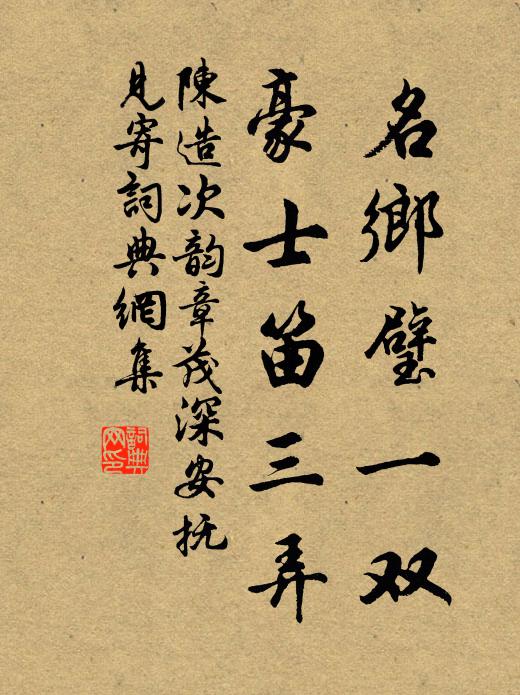 名鄉璧一双
豪士笛三弄
陳造次韵章茂深安抚
見寄詞典網集
詞典网印